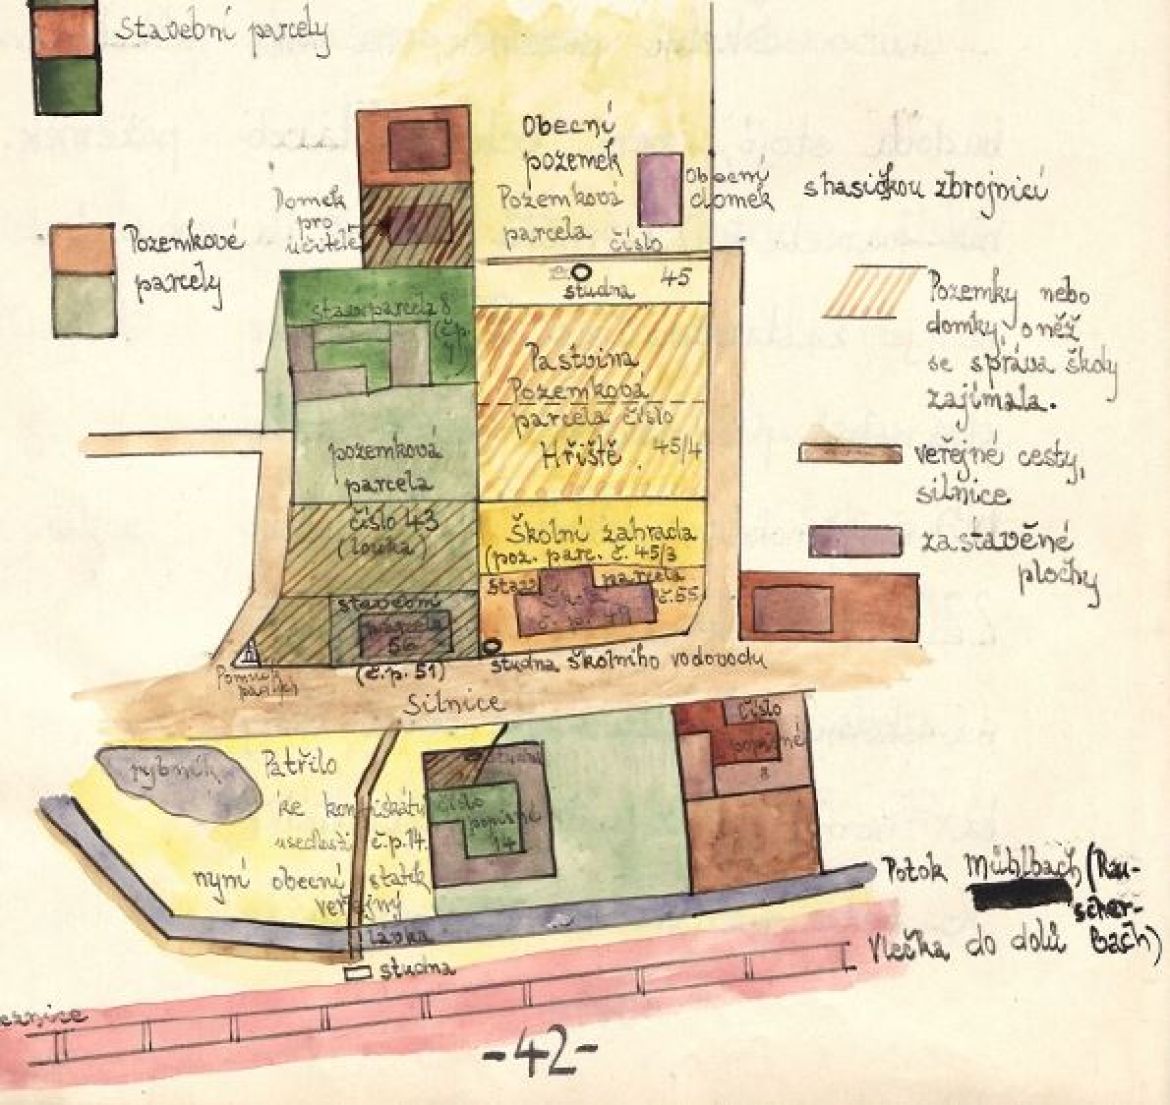 Stavební parcely
Obecní
pozemek
Pozemková
parcela
číslo
45
studna
Obecní
domek
s hasičkou zbrojnicí
Domek
pro
učitele
Pozemkové
parcely
Pozemky nebo
domky, o něž
se správa školy
zajímala.
veřejné cesty,
silnice
zastavěné
plochy
stav. parcela 8
(č.p.
Pastvina
Pozemková
parcela číslo
45/4
Hřiště
pozemková
parcela
číslo 43
(louka)
Školní zahrada
(poz. parc. č. 45/3
stav. parcela
č. 55
Škola
č. p. 49
stavební
parcela
56
(č.p. 51)
studna školního vodovodu
Pomník
padlých
Silnice
rybník
Patřilo
ke konfiskátu
usedlosti č.p. 14.
nyní obecní statek
veřejný
lávka
studna
studna
číslo
popisné
14
číslo
popisné
8
Potok Mühlbach (Rau-
scher-
bach)
Vlečka do dolů
-42-